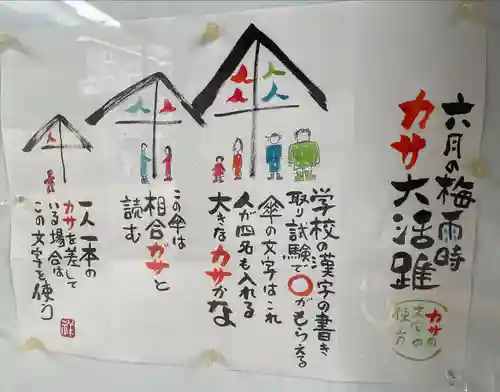 六月の梅雨時
カサ大活躍
カサの
文字の
使い方
学校の漢字の書き
取り試験で○がもらえる
傘の文字はこれ
人が四名も入れる
大きなカサかな
この傘は
相合ガサと
読む
一人一本の
カサを差して
いる場合は
この文字を使う